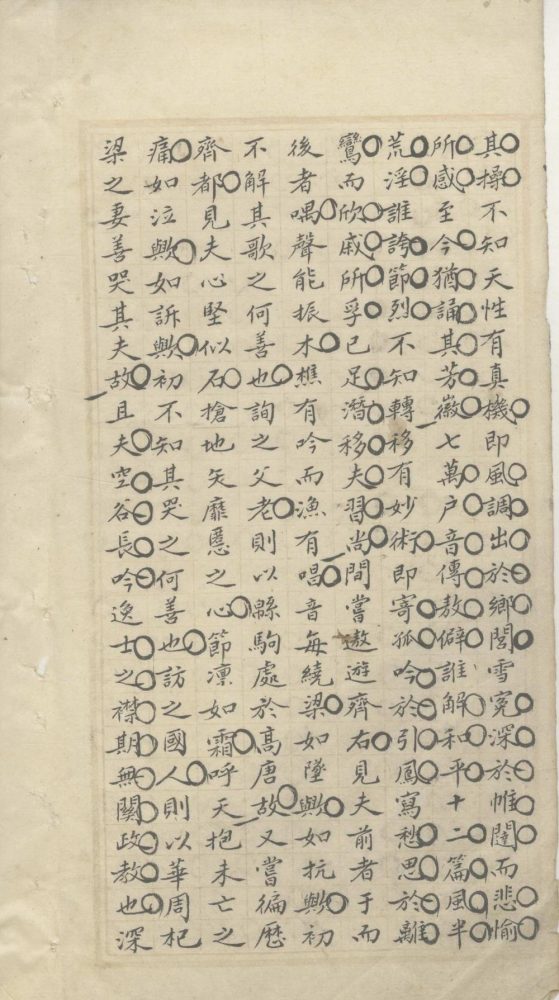 其操不知天性有真機即風調出於鄉閭雪冤深於帷闥而悲愉
所感至今猶誦其芳徽七萬户音傳敖僻誰解和平十二篇風半
荒淫誰誇節烈不知轉移有妙術即寄孤吟於引鳳寫愁思於離
鸞而欣戚所孚已足潛移夫習尚間嘗遨遊齊右見夫前者于而
後者喁聲能振木樵有吟而漁有唱音每繞梁如墜歟如抗歟初
不解其歌之何善也詢之父老則以緜駒處於高唐故又嘗徧歷
齊都見夫心堅似石搶地矢靡慝之心節凜如霜呼天抱未亡之
痛如泣歟如訴歟初不知其哭之何善也訪之國人則以華周杞
梁之妻善哭其夫故且夫空谷長吟逸士之襟期無關政教也深